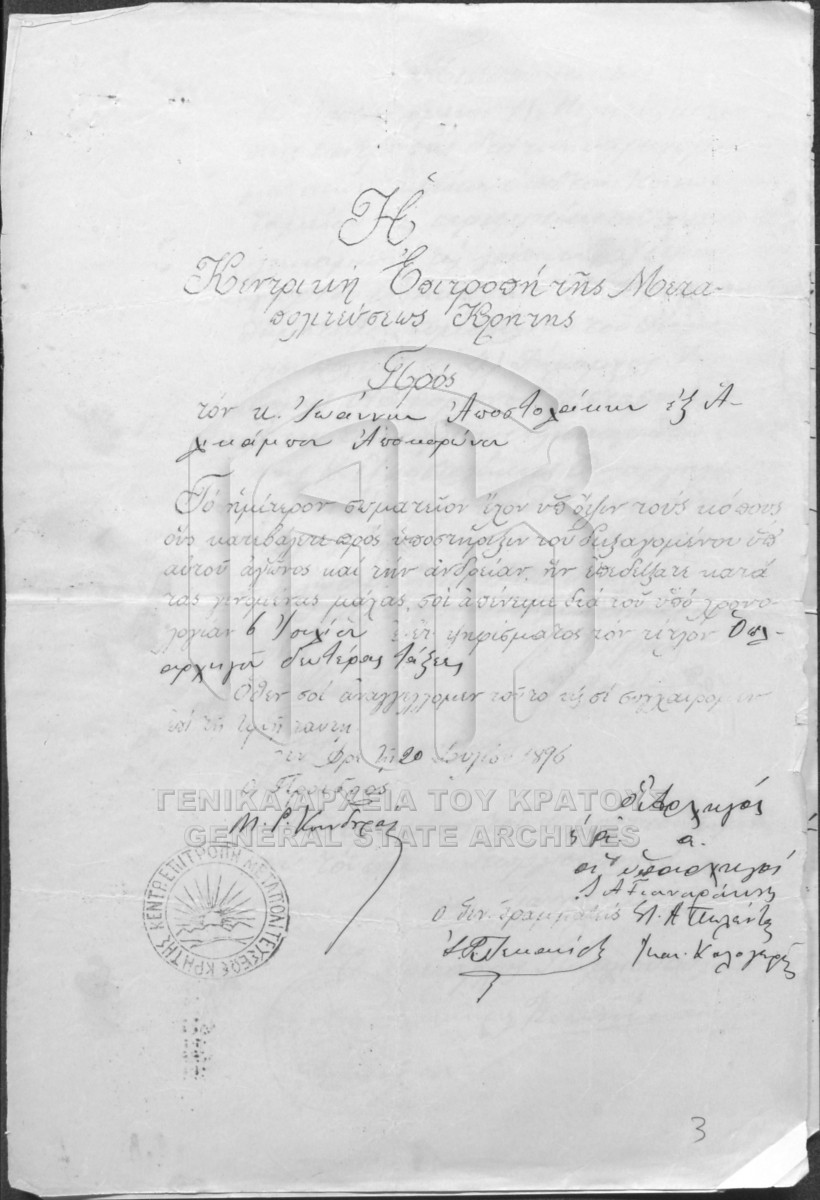 Ἡ
Κεντρική Ἐπιτροπή τῆς Μετα-
πολιτεύσεως Κρήτης
Πρός
τόν κ. Ἰωάννην Ἀποστολάκην ἐξ Ἀ-
λικάμπου Ἀποκορώνου
Τό ἡμέτερον σωματεῖον ἔχον ὑπ' ὄψιν τούς κόπους
οὕς κατεβάλετε πρός ὑποστήριξιν τοῦ διεξαγομένου ὑπ'
αὐτοῦ ἀγῶνος καί τήν ἀνδρείαν, ἥν ἐπεδείξατε κατά
τάς γενομένας μάχας, σοί ἀπένειμε διά τοῦ ὑπό χρονο-
λογίαν 6 Ἰουλίου ἐ.ἔτ. ψηφίσματος τόν τίτλον Ὁπλ-
αρχηγοῦ δευτέρας τάξεως
Ὅθεν σοί ἀναγγέλλομεν τοῦτο καί σέ συγχαίρομεν
ἐπί τῇ τιμῇ ταύτῃ
τῇ 20 Ἰουλίου 1896
Ὁ Πρόεδρος
Οἱ Ἀρχηγοί
Μ. Ρ. Κούνδουρος
οἱ ὑπαρχηγοί
Ὁ Γεν. Γραμματεύς
ΚΕΝΤΡ. ΕΠΙΤΡΟΠΗ ΜΕΤΑΠΟΛΙΤΕΥΣΕΩΣ ΚΡΗΤΗΣ
ΓΕΝΙΚΑ ΑΡΧΕΙΑ ΤΟΥ ΚΡΑΤΟΥΣ
GENERAL STATE ARCHIVES
3